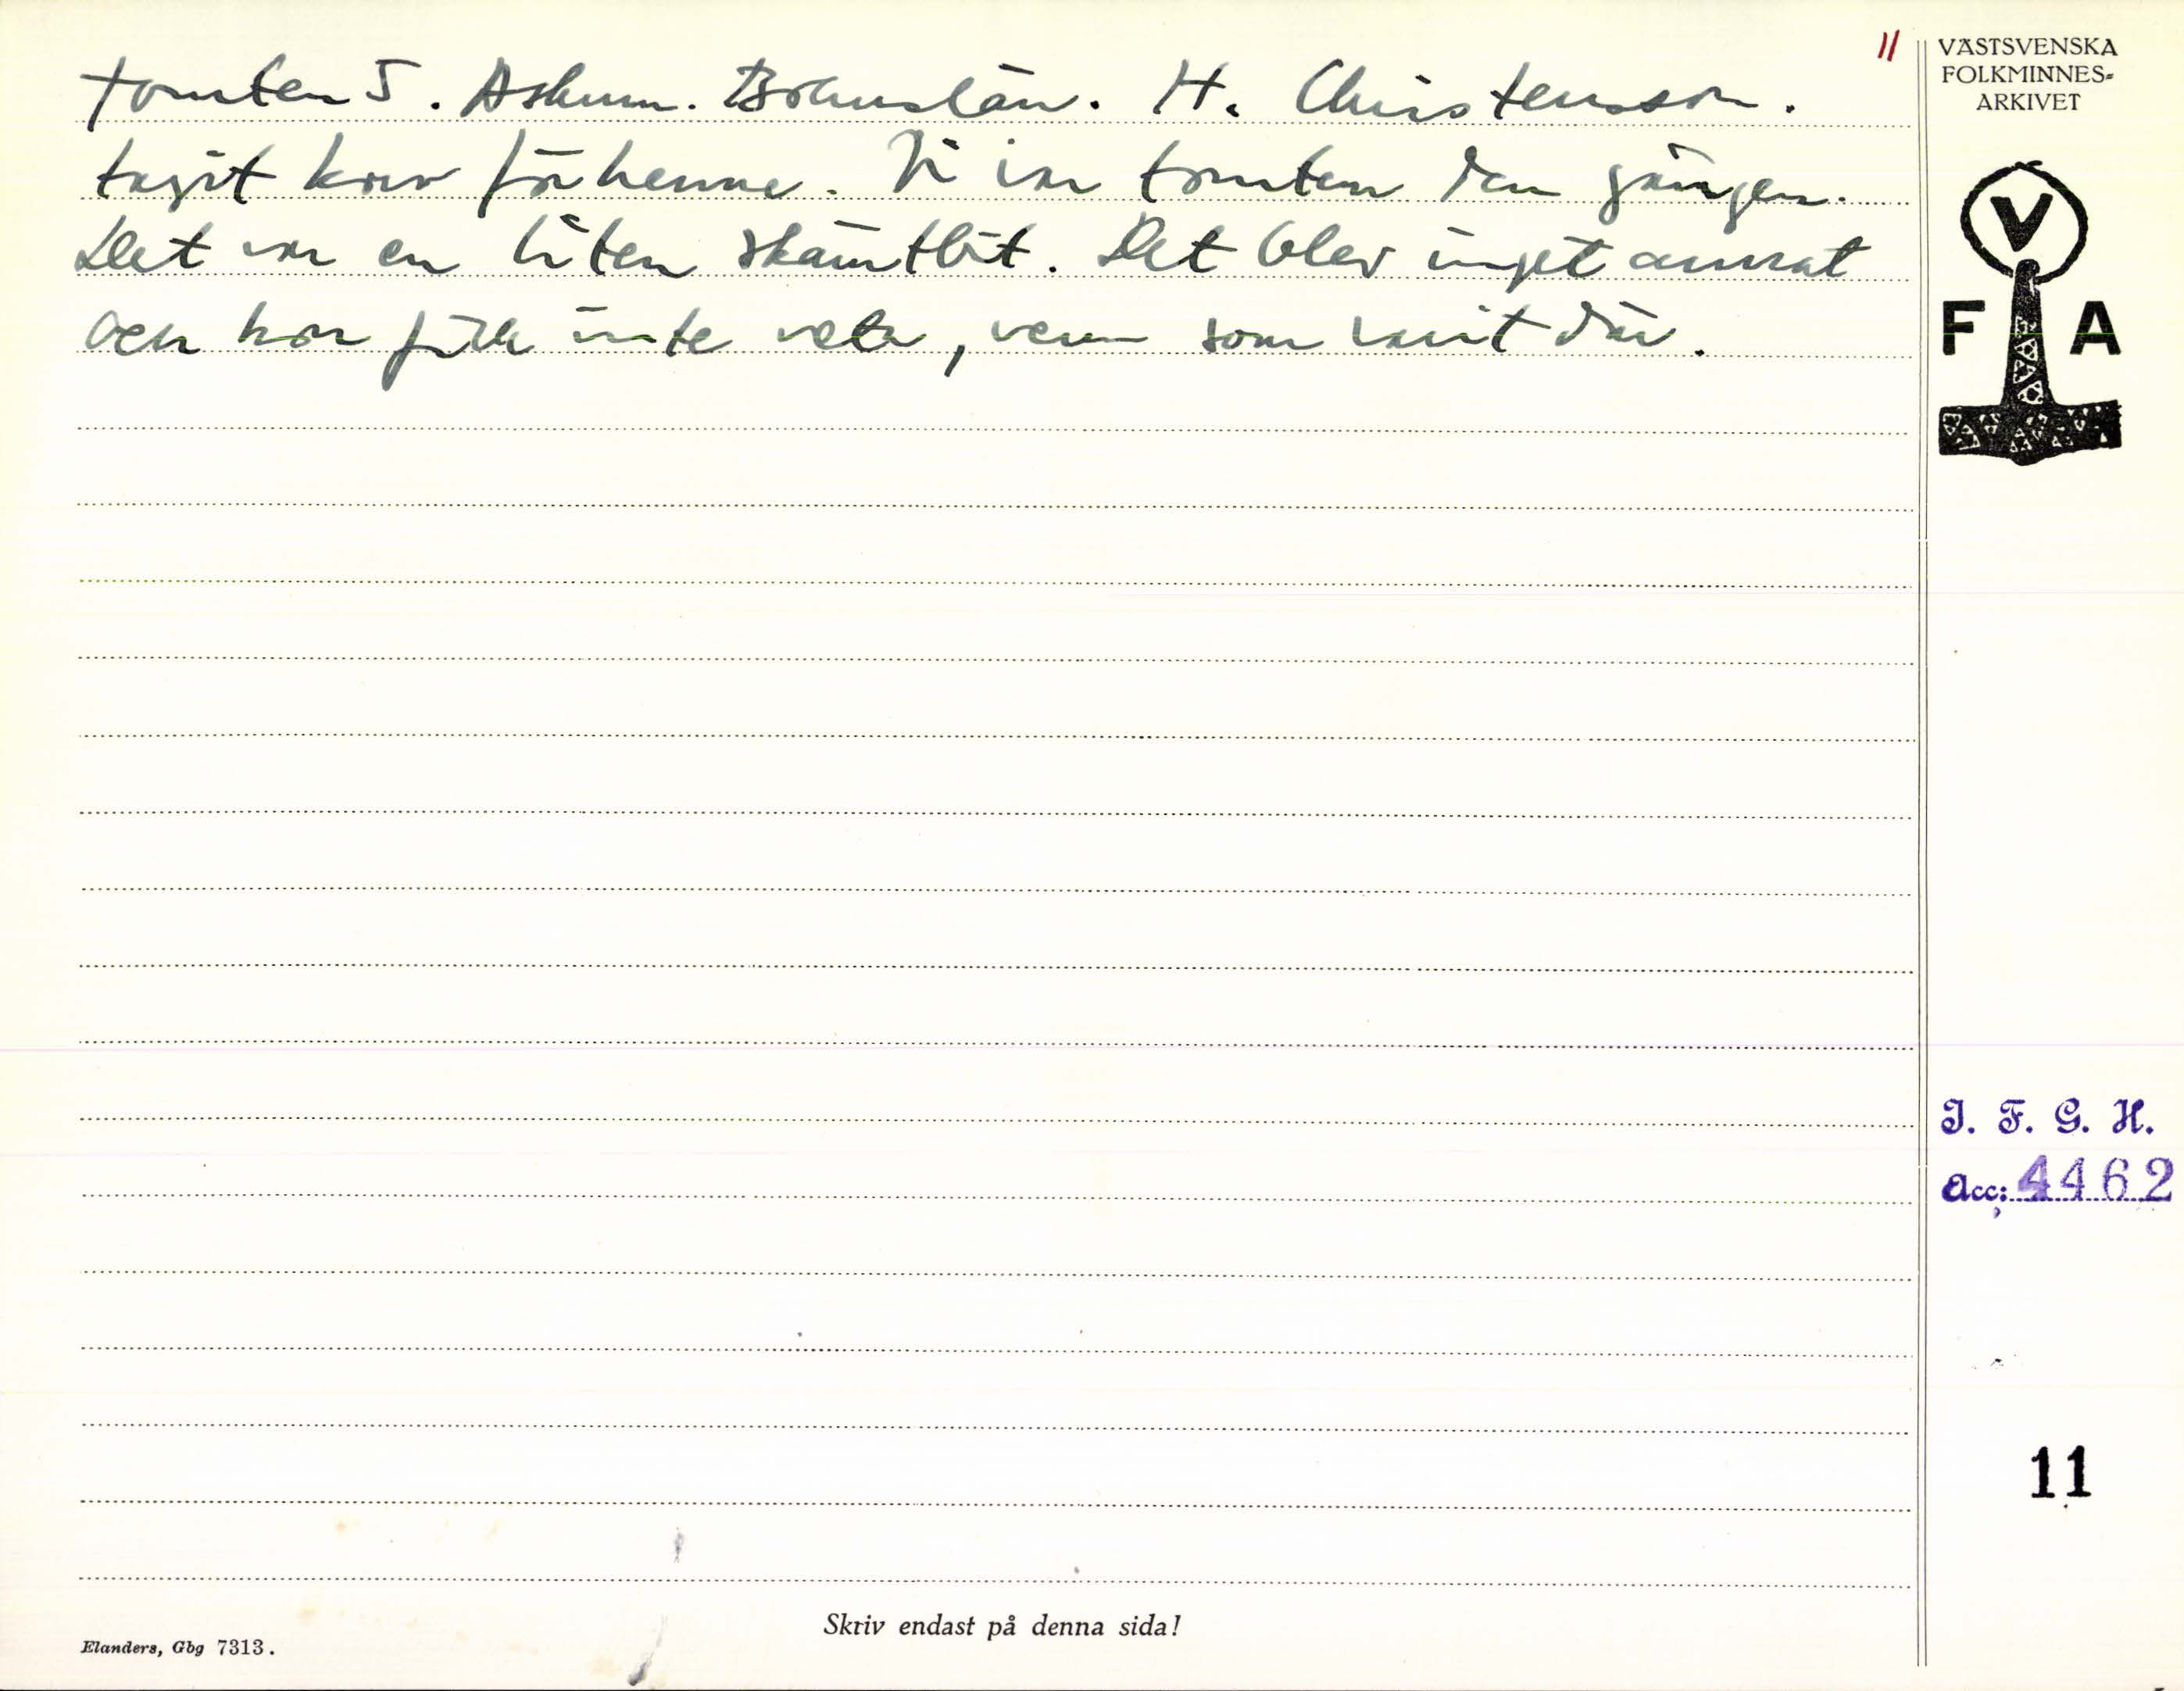 11
Tomten 5. Askum. Bohuslän. H. Christensson.
tagit korv för henne. Vi var tomten den gången.
Det var en liten skämtbit. Det blev inget annat
och hon fick inte veta, vem som varit där.
VÄSTSVENSKA
FOLKMINNES-
ARKIVET
V
F A
I. F. G. H.
Acc: 4462
11
Skriv endast på denna sida!
Elanders, Gbg 7313.